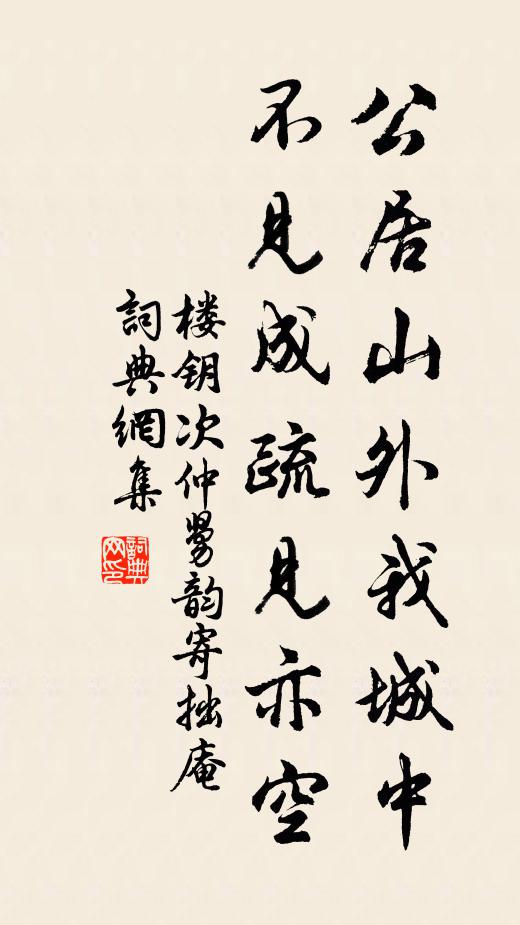 公居山外我城中
不見成疏見亦空
楼钥次仲舅韵寄拙庵
詞典網集
詞典网印